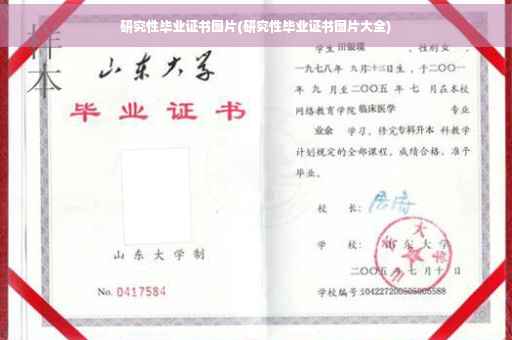 研究性毕业证书图片(研究性毕业证书图片大全)
样本
山东大学
毕业证书
山东大学制
No. 0417584
学生田银瑛 ,性别女 ,
一九七八年 九月十三日生,于二〇〇一
年 九 月至二〇〇五 年 七 月在本校
网络教育学院临床医学 专业
业余 学习,修完专科升本 科教学
计划规定的全部课程,成绩合格,准予
毕业。
校 长:
学 校: 山东大学
二〇〇五年七月十日
学校编号:104227200505005588